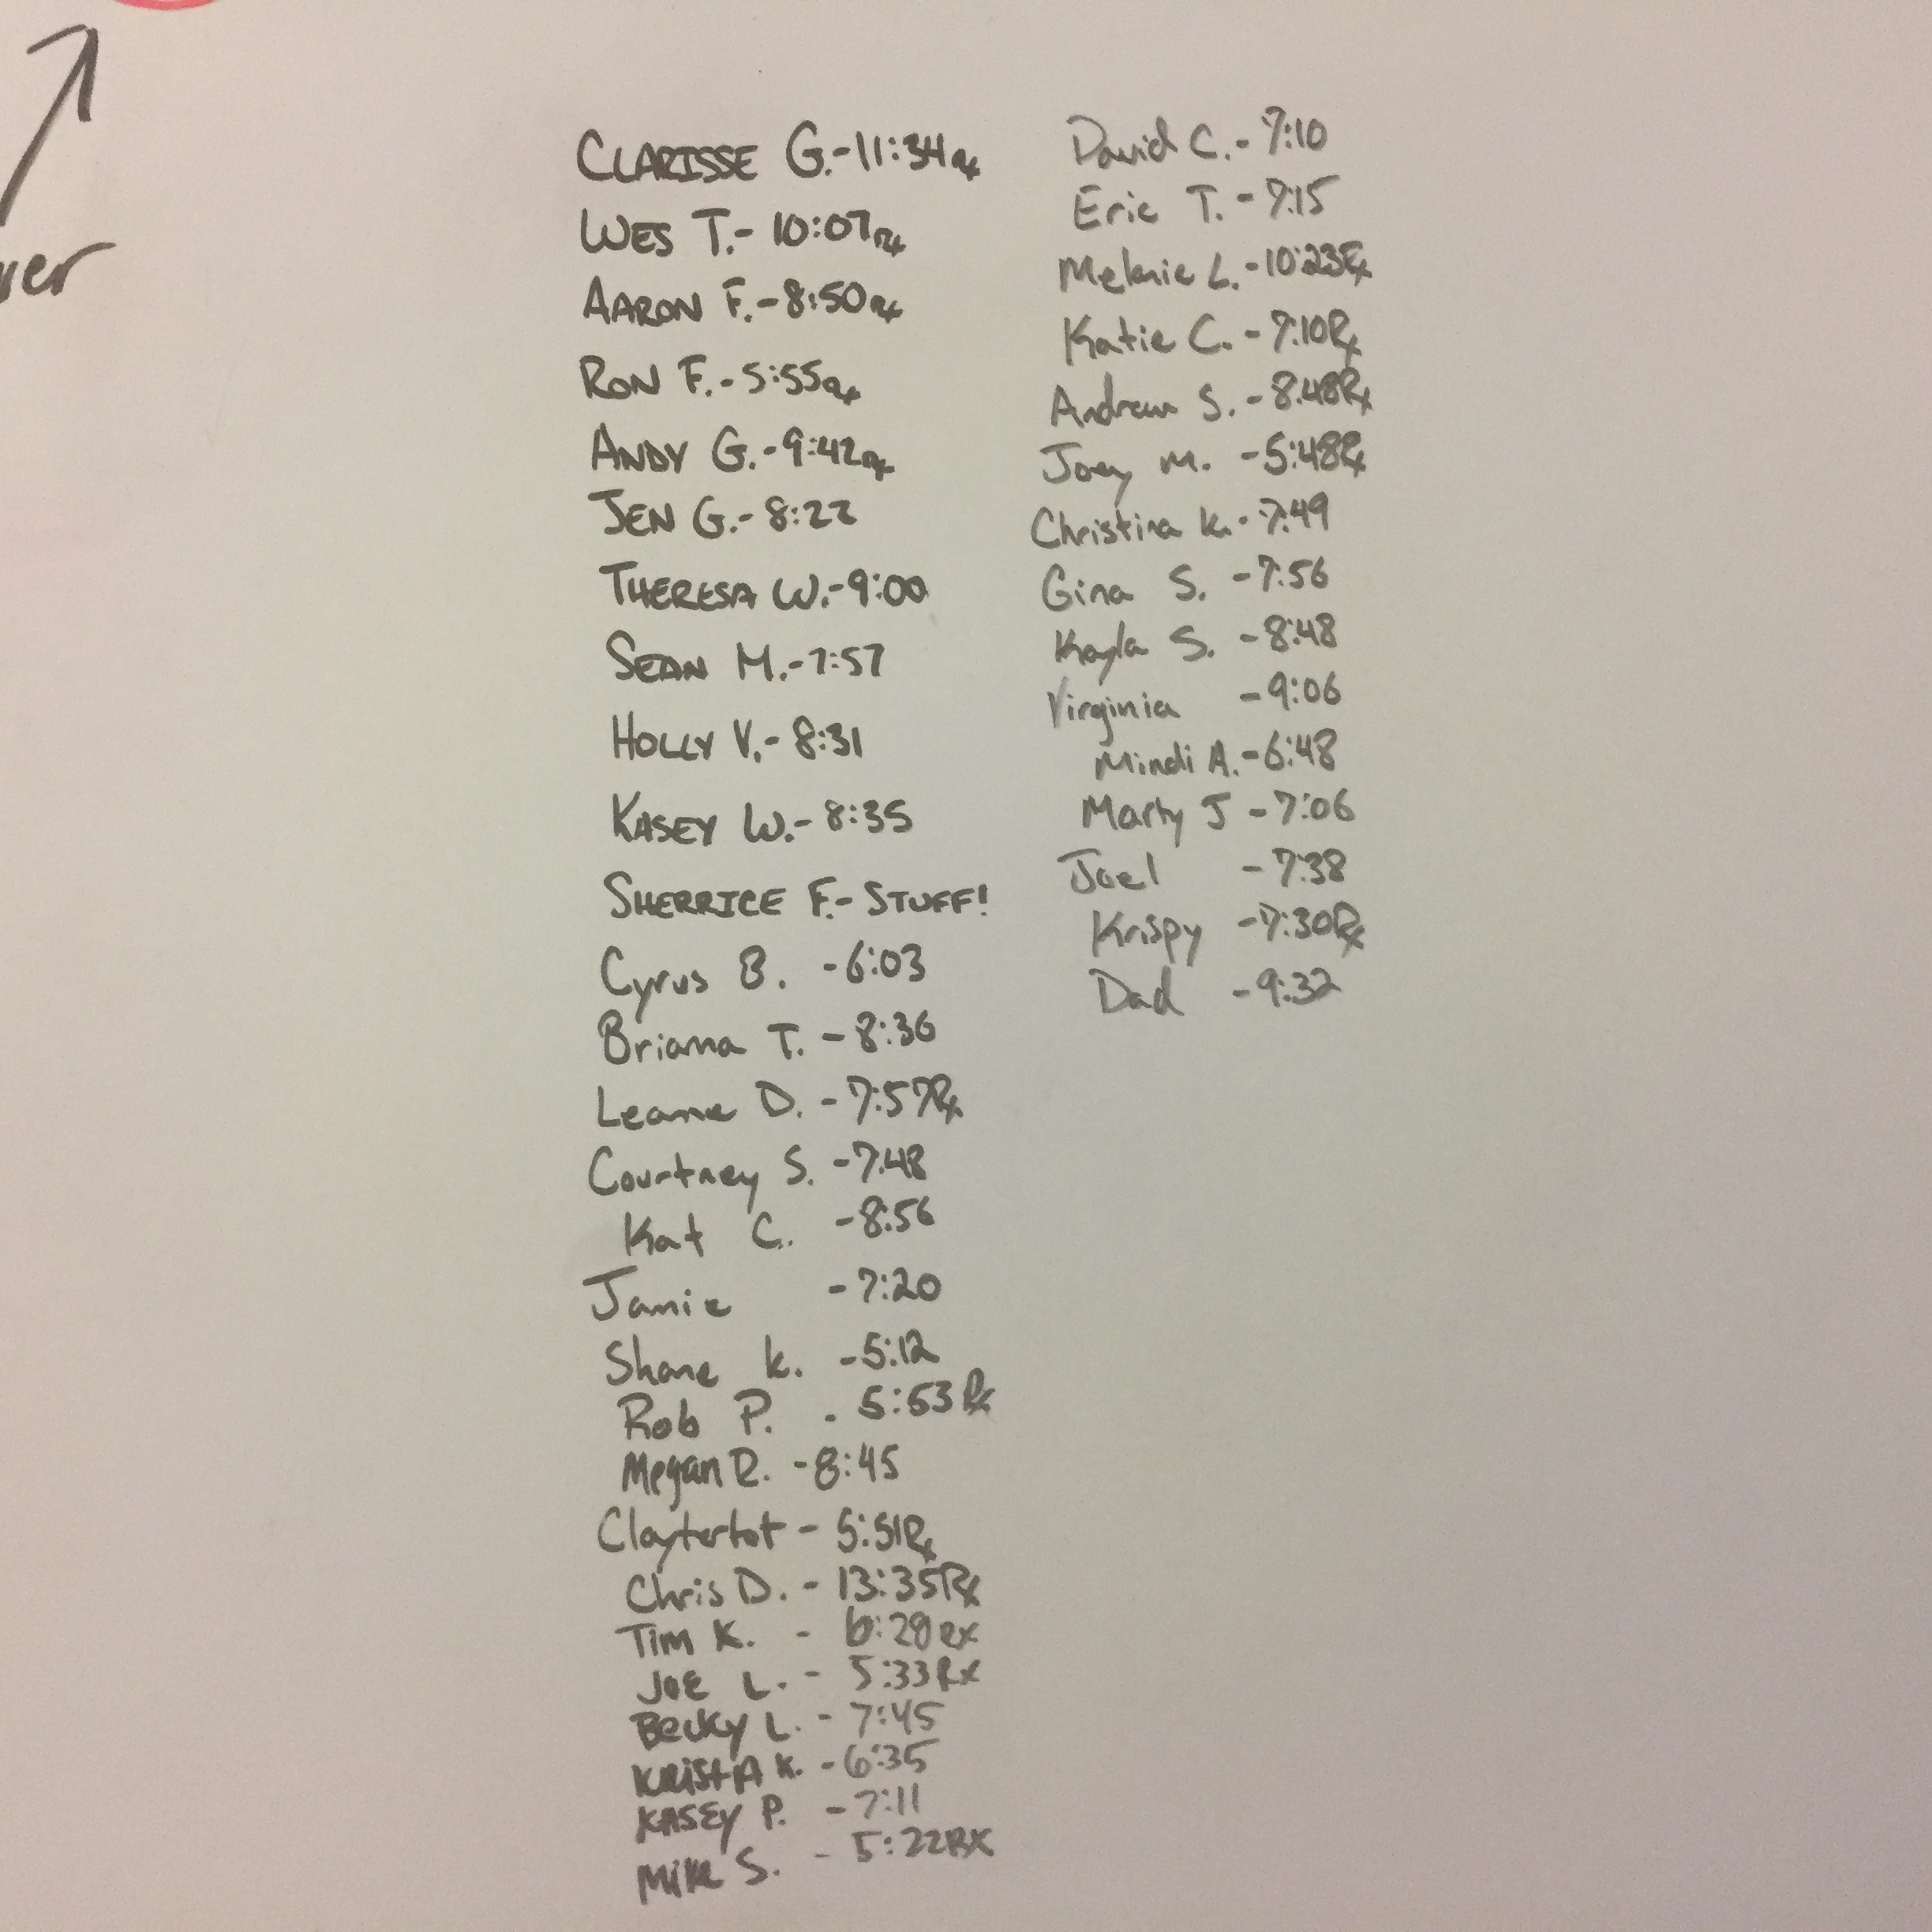 CLARISSE G.-11:34Rx
WES T.- 10:07Rx
AARON F.-8:50Rx
RON F.-5:55Rx
ANDY G.-9:42Rx
JEN G.-8:22
THERESA W.-9:00
SEAN M.-7:57
HOLLY V.-8:31
KASEY W.-8:35
SHERRICE F.-STUFF!
Cyrus B. -6:03
Briana T. -8:36
Leanne D. -7:57Rx
Courtney S. -7:48
Kat C. -8:56
Jamie -7:20
Shane K. -5:12
Rob P. - 5:53Rx
Megan R. -8:45
Claytertot - 5:51Rx
Chris D. - 13:35Rx
Tim K. - 6:28Rx
JOE L. - 5:33Rx
Becky L. - 7:45
KRISTA K. -6:35
KASEY P. -7:11
Mike S. - 5:22RX
David C.-7:10
Eric T.-7:15
Melanie L.-10:23Rx
Katie C. -7:10Rx
Andrew S. -8:48Rx
Joey M. -5:48Rx
Christina K.-7:49
Gina S. -7:56
Kayla S. -8:48
Virginia -9:06
Mindi A.-6:48
Marty J -7:06
Joel -7:38
Krispy -7:30Rx
Dad -9:32